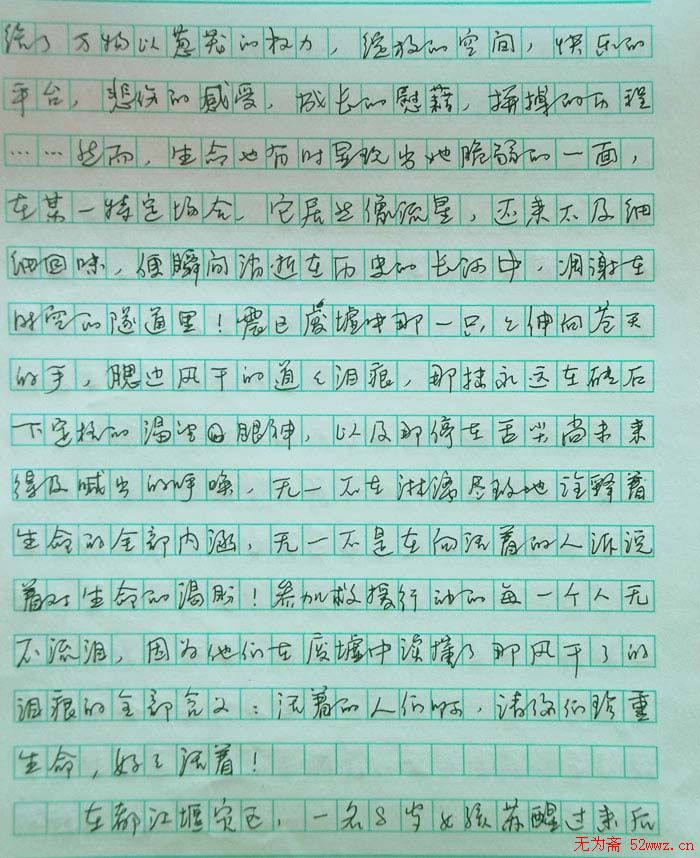 给了万物以葱茏的权力，绽放的空间，快乐的
平台，悲伤的感受，成长的慰藉，拼搏的历程
……然而，生命也有时显现出她脆弱的一面，
在某一特定场合，它居然像流星，还来不及细
细回味，便瞬间消逝在历史的长河中，凋谢在
时空的隧道里！震区废墟中那一只只伸向苍天
的手，腮边风干的道道泪痕，那抹永远在砖石
下定格的渴望眼神，以及那停在舌尖尚未来
得及喊出的呼唤，无一不在淋漓尽致地诠释着
生命的全部内涵，无一不是在向活着的人诉说
着对生命的渴盼！参加救援行动的每一个人无
不流泪，因为他们在废墟中读懂了那风干了的
泪痕的全部含义：活着的人们啊，请你们珍重
生命，好好活着！
在都江堰灾区，一名8岁女孩苏醒过来后
无为斋 52wwz.cn